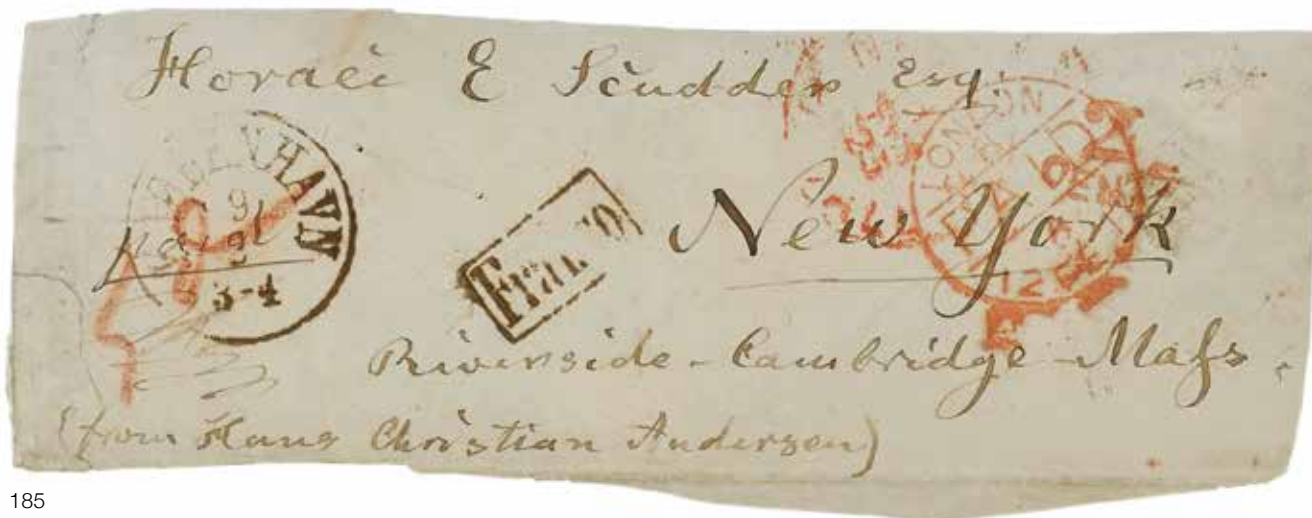 Horace E Scudder Esq.
KJØBENHAVN
9
3-4
Franco
New York
LONDON
PAID
12
Riverside - Cambridge - Mass.
(from Hans Christian Andersen)
185